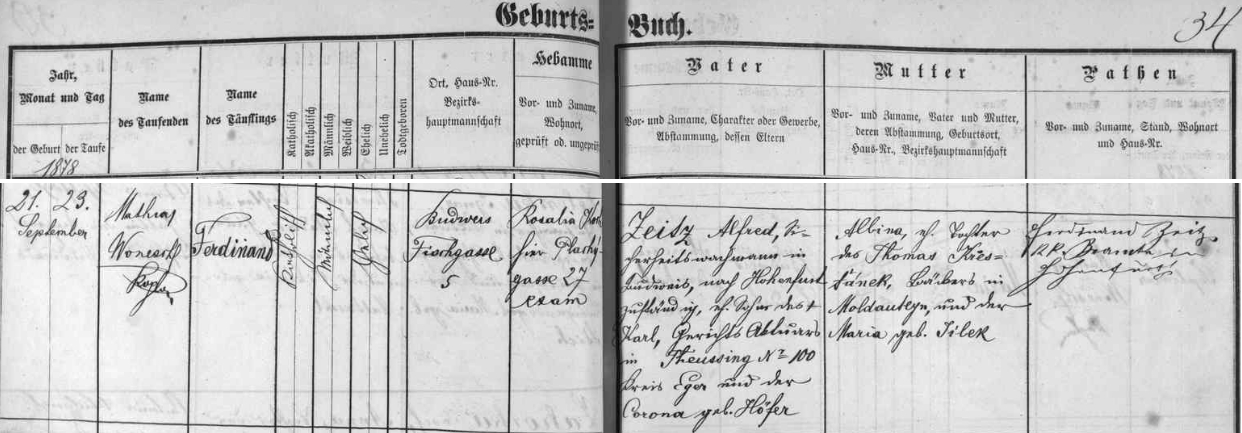 Geburts-
Buch.
34
Jahr,
Monat und Tag
der Geburt der Taufe
1878
Name
des Taufenden
Name
des Täuflings
Katholisch
Akatholisch
Männlich
Weiblich
Ehelich
Unehelich
Todtgeboren
Ort, Haus-Nr.
Bezirks-
hauptmannschaft
Hebamme
Vor- und Zuname,
Wohnort,
geprüft od. ungeprüft
Vater
Vor- und Zuname, Charakter oder Gewerbe,
Abstammung, dessen Eltern
Mutter
Vor- und Zuname, Vater und Mutter,
deren Abstammung, Geburtsort,
Haus-Nr., Bezirkshauptmannschaft
Pathen
Vor- und Zuname, Stand, Wohnort
und Haus-Nr.
21. 23.
September
Mathias
Ferdinand
Katholisch
Männlich
Ehelich
Budweis
Fischgasse
5
Rosalia
hier Plachy-
gasse 27
exam
Zeitz Alfred, Si-
cherheitswachmann in
Budweis, nach Hohenfurt
zuständig, eh. Sohn des †
Karl, Gerichts Aktuars
in Theussing No 100
Kreis Eger und der
Corona geb. Höfer
Albina, eh. Tochter
des Thomas Kres-
fánek, Bäckers in
Moldautein, und der
Maria geb. Jilek
Ferdinand Zeitz
k.k. Beamter in
Hohenfurt